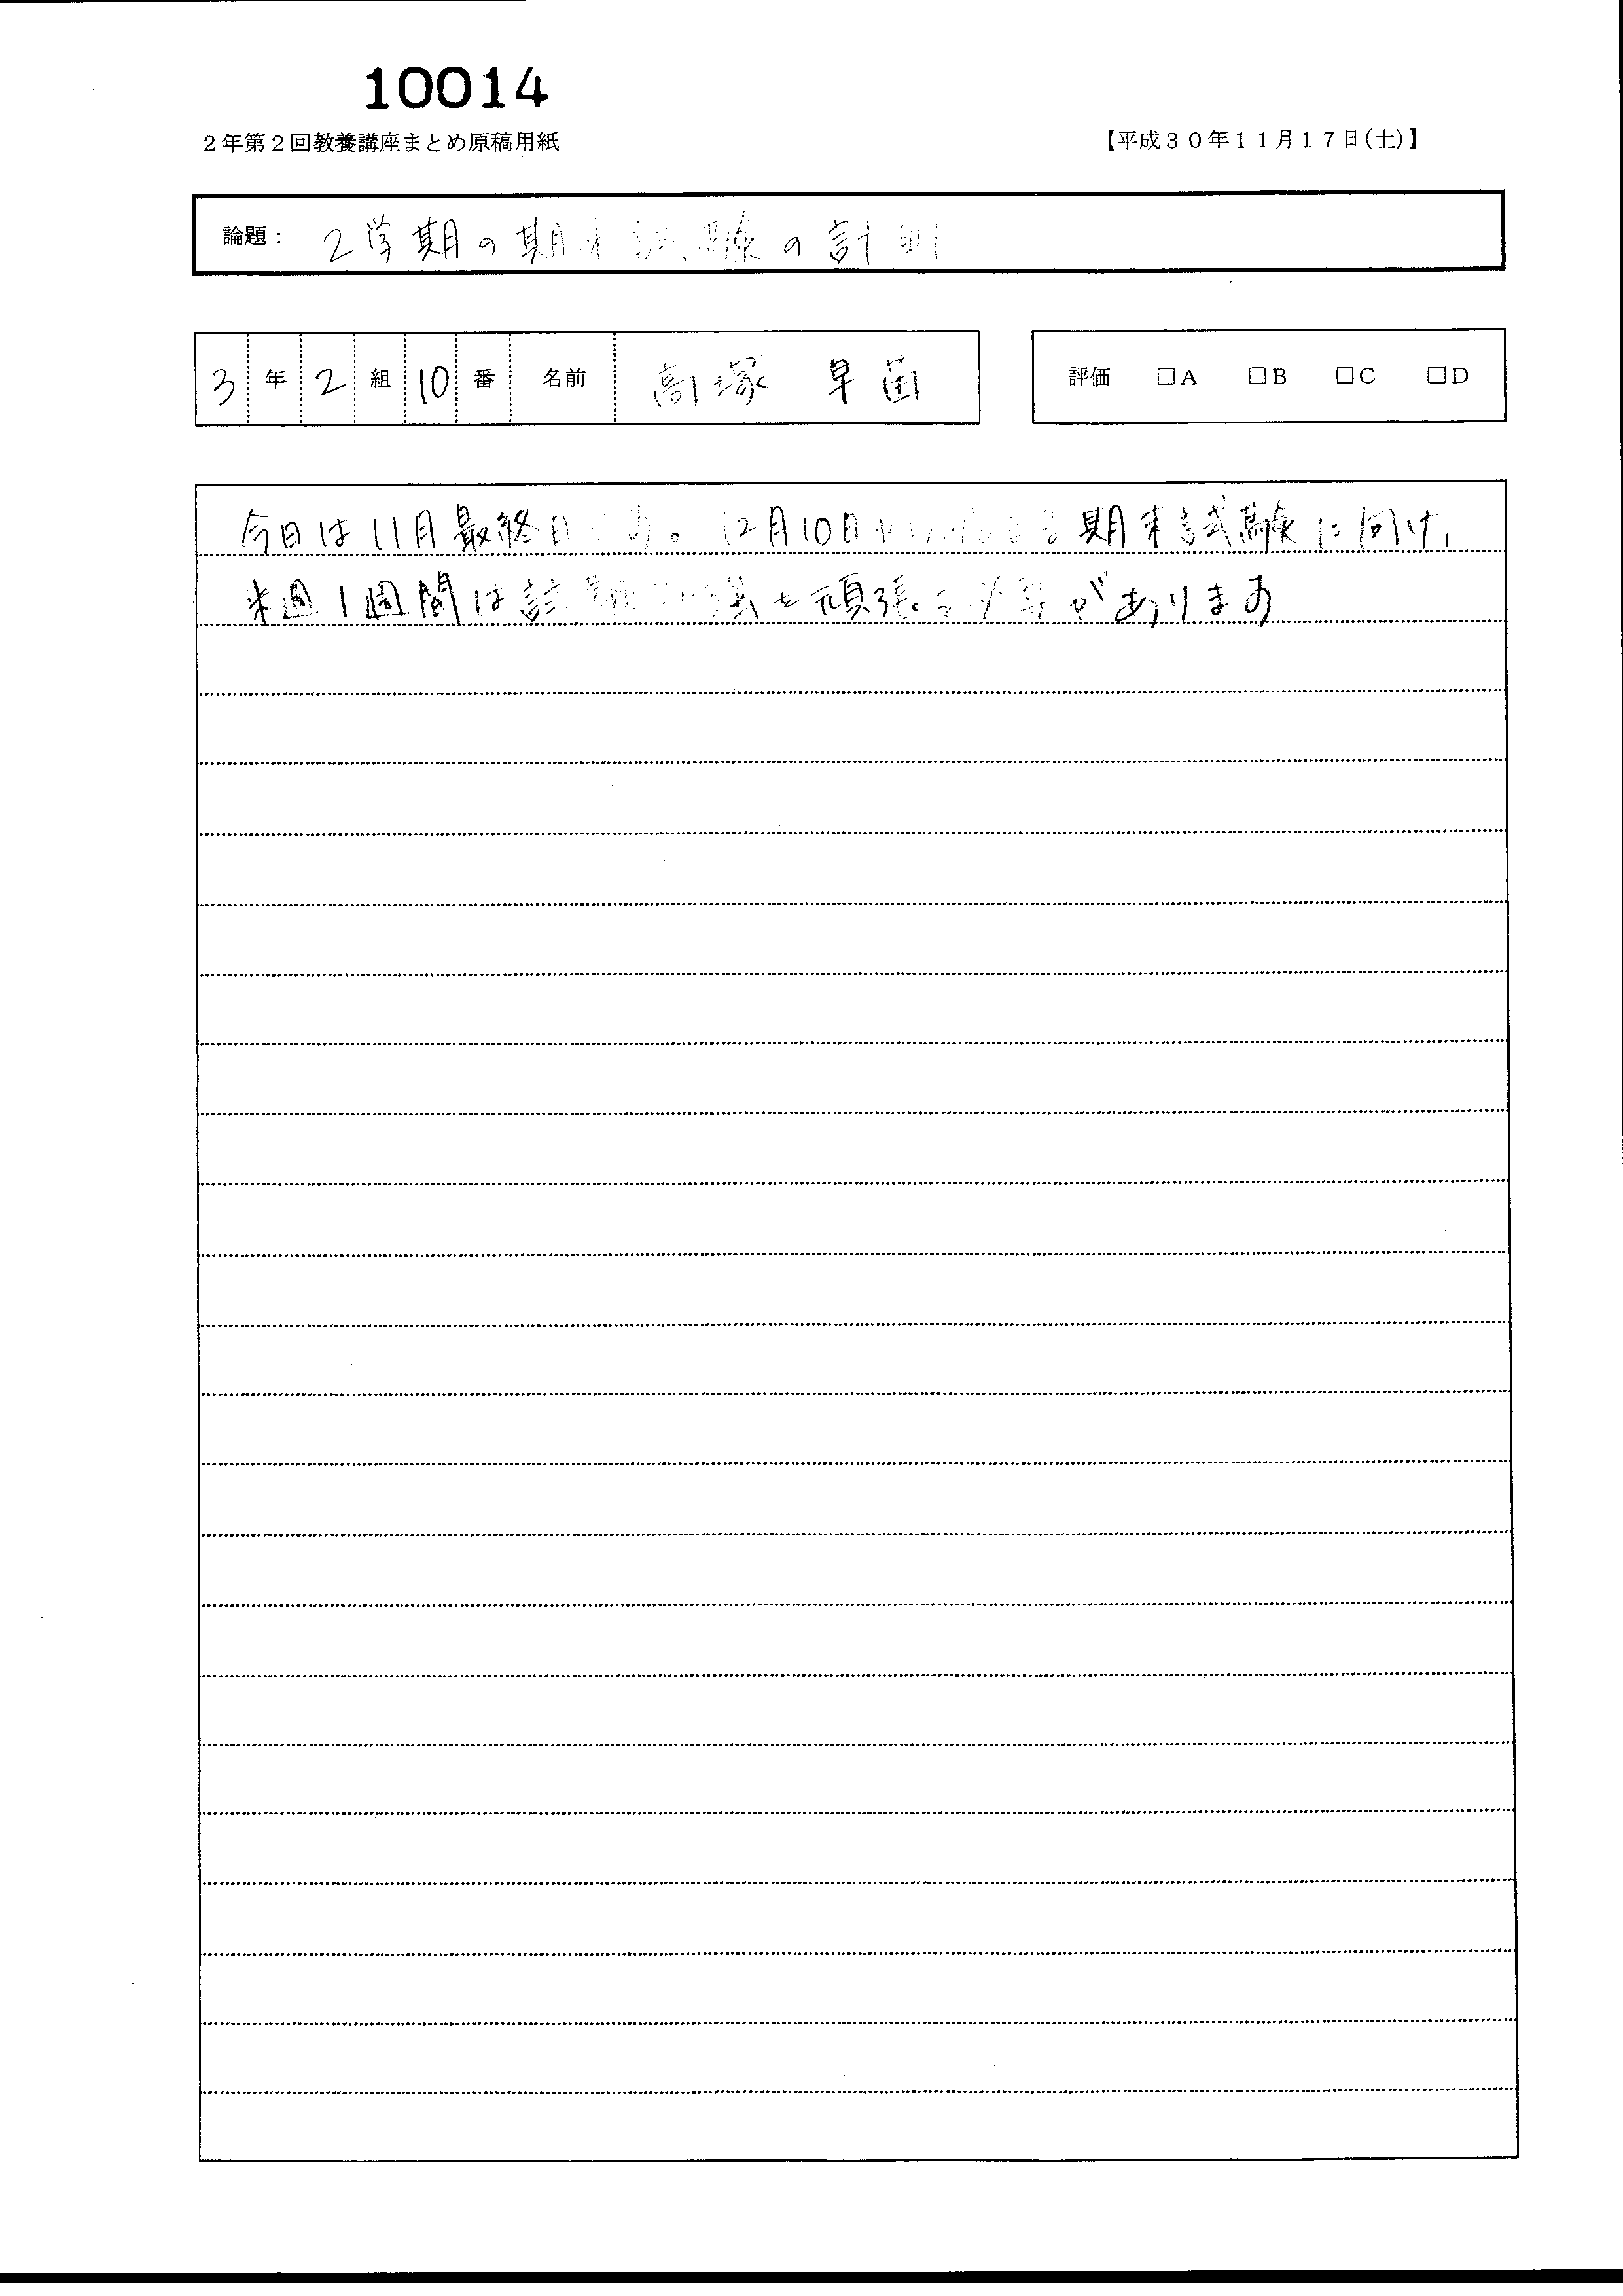 10014
2年第2回教養講座まとめ原稿用紙
【平成30年11月17日(土)】
論題: 2学期の期末試験の計画
3年2組10番 名前 高塚 早苗
評価 □A □B □C □D
今日は11月最終日です。12月10日から始まる期末試験に向け、
来週1週間は試験勉強を頑張る必要があります